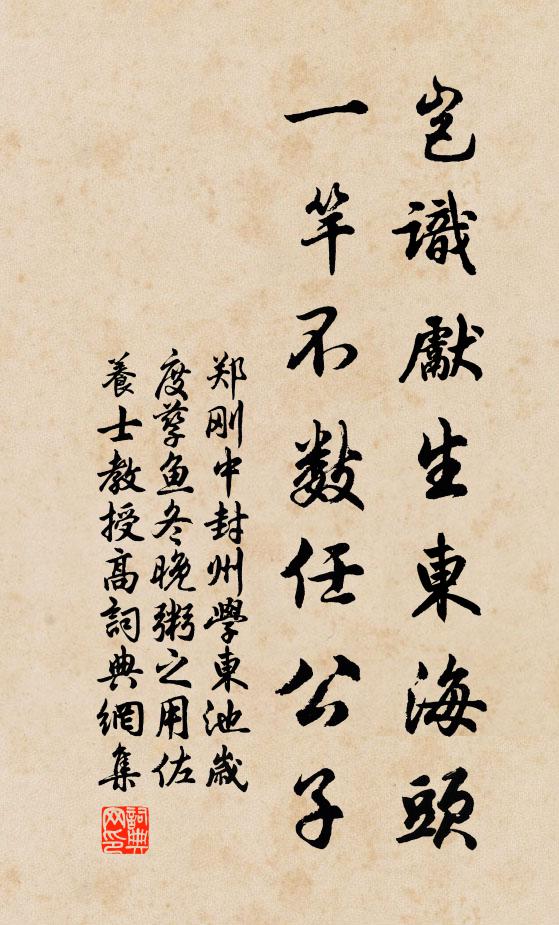 豈識獻生東海頭
一竿不數任公子
郑刚中封州學東池歲
度孳鱼冬晚粥之用佐
養士教授高詞典網集
詞典网印